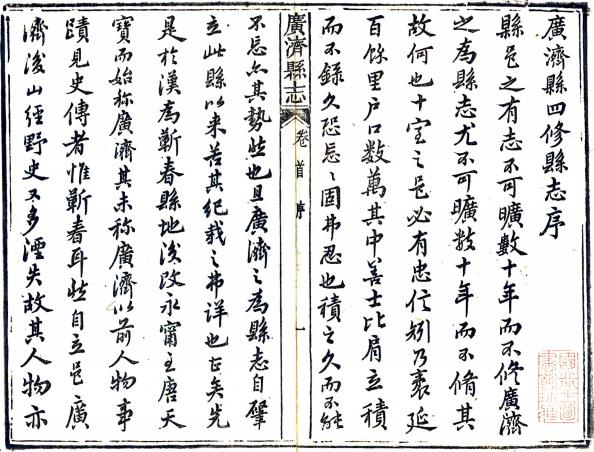 廣濟縣四修縣志序
縣邑之有志不可曠數十年而不修廣濟
之為縣志尤不可曠數十年而不脩其
故何也十室之邑必有忠信矧乃袤延
百餘里户口數萬其中善士比肩立積
而不錄久恐忘〻固弗忍也積之久而不能
廣濟縣志 卷首 序 一
不忘亦其勢然也且廣濟之為縣志自肇
立此縣以来苦其紀载之弗詳也矣先
是於漢為蘄春縣地後改永甯至唐天
寶而始称廣濟其未称廣濟以前人物事
蹟見史傳者惟蘄春耳然自立邑廣
濟後山經野史又多湮失故其人物亦